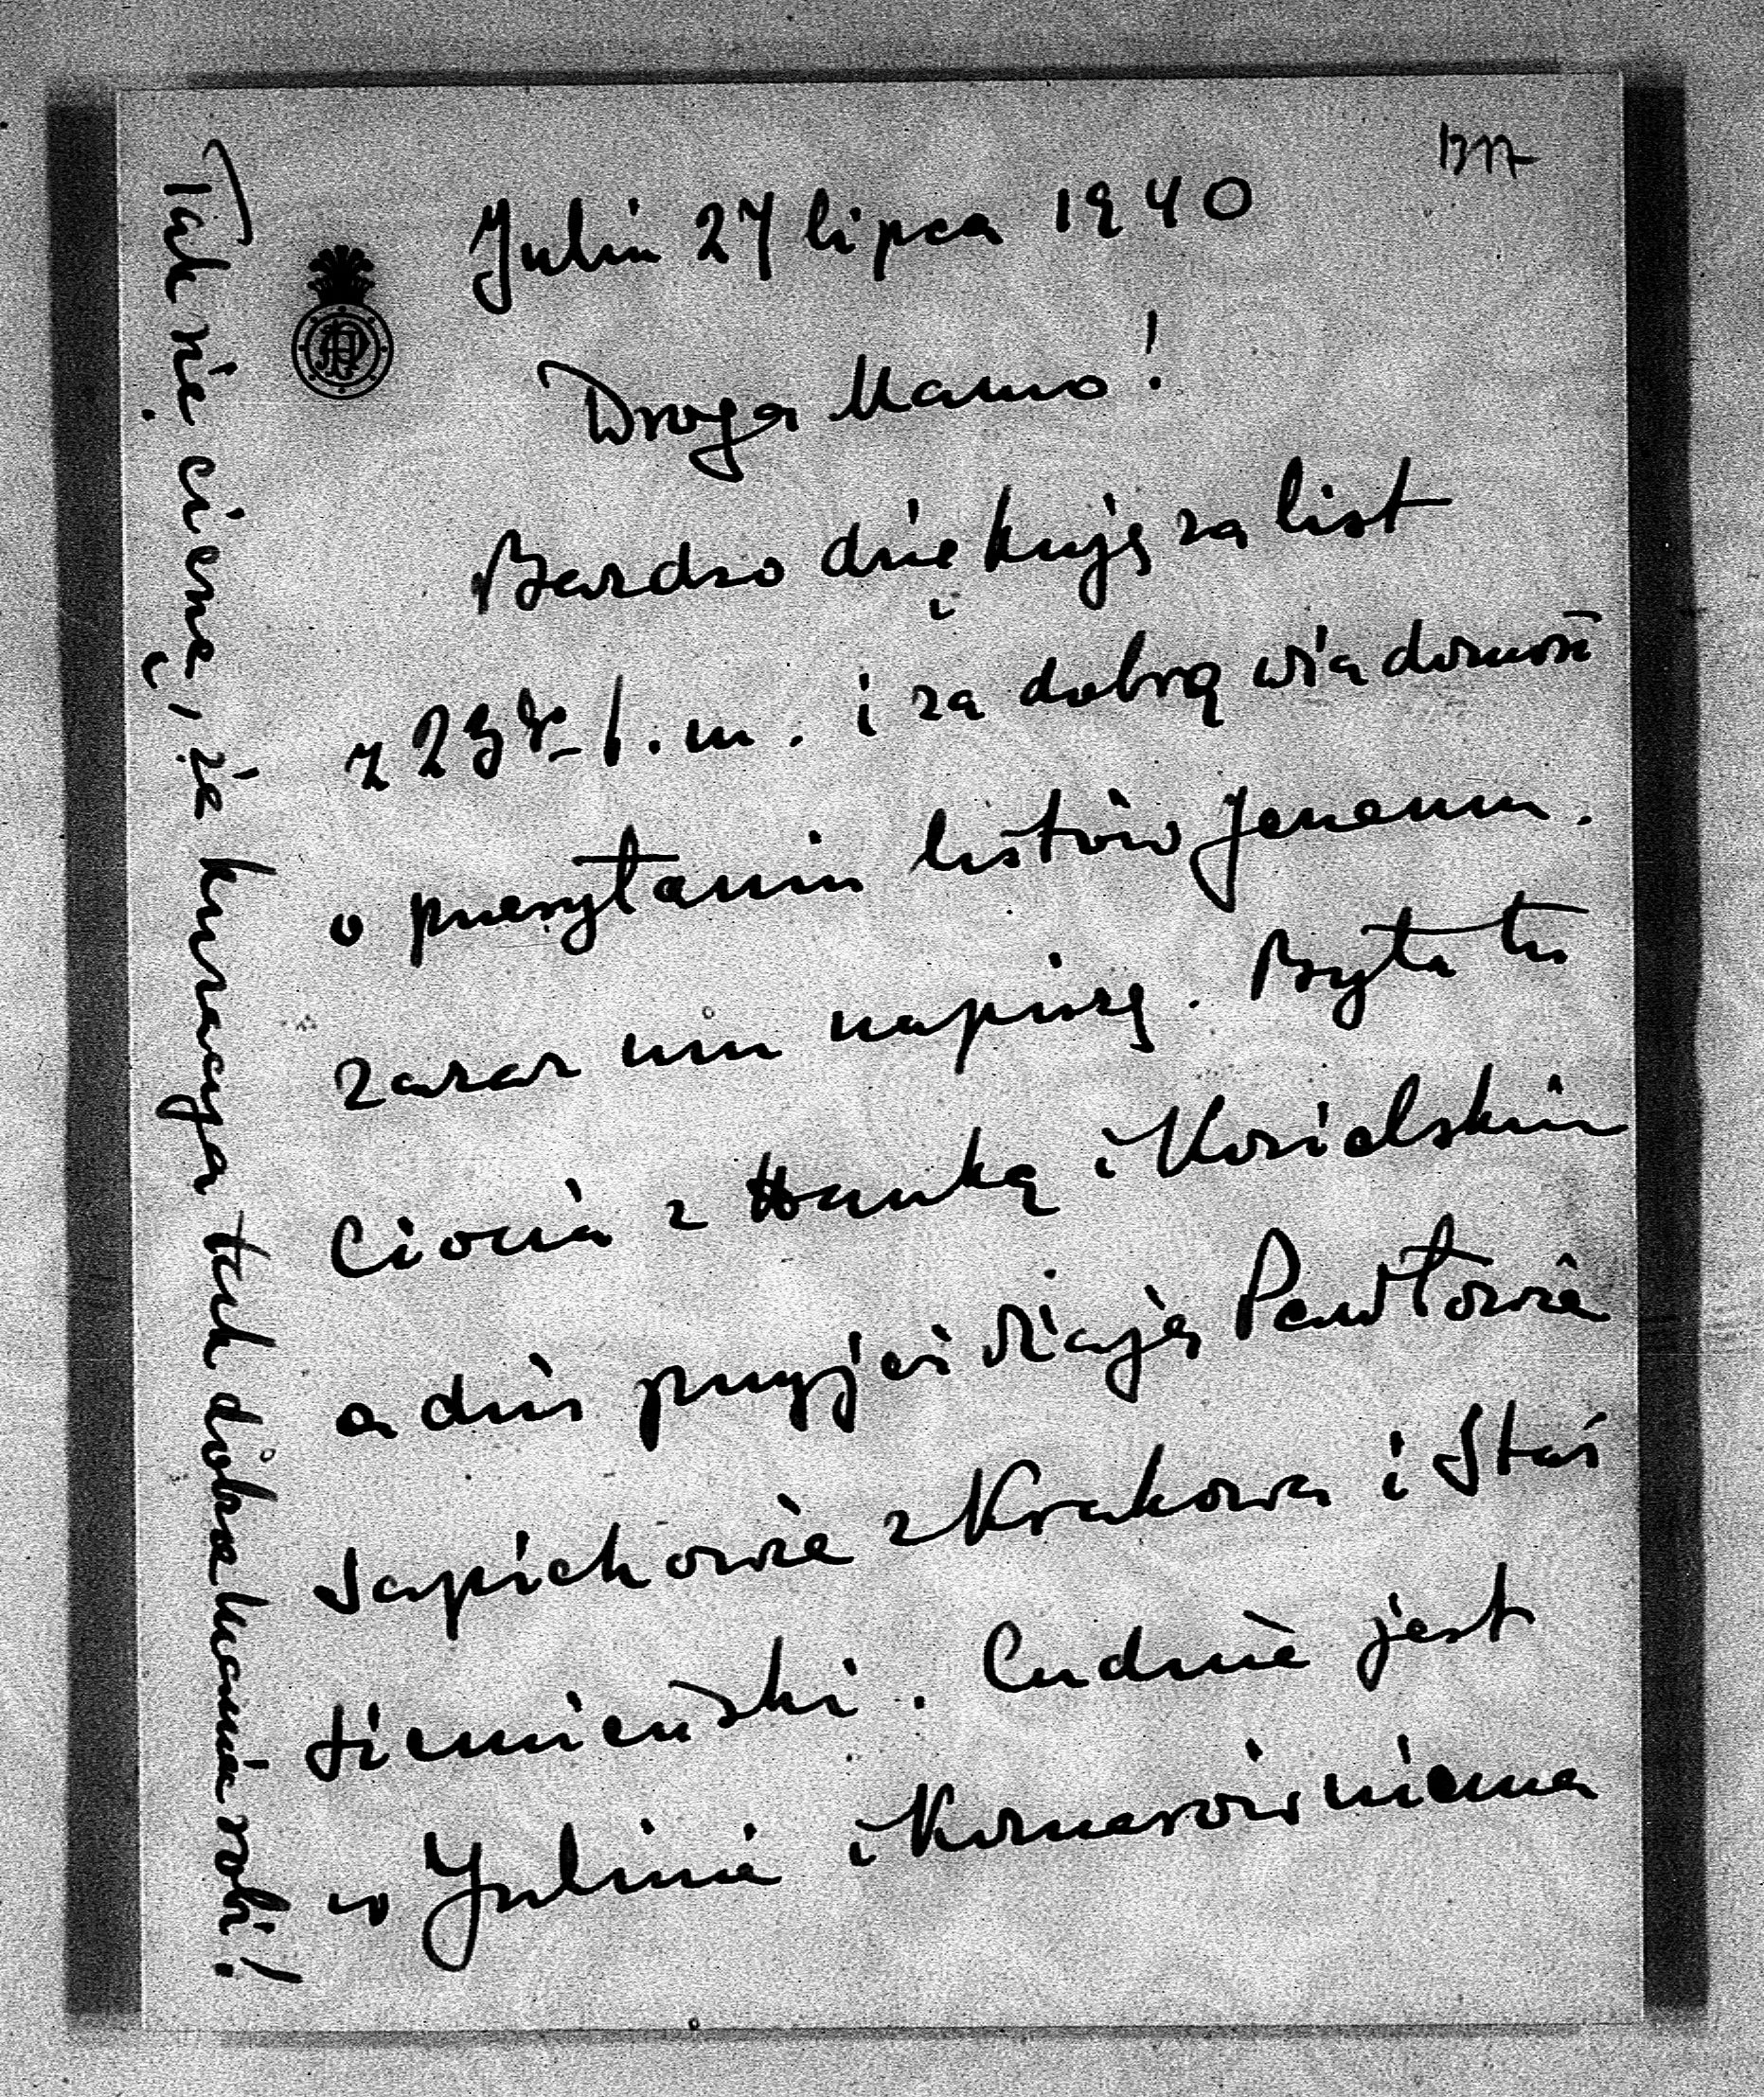 Julin 27 lipca 1940
Droga Mamo!
Bardzo dziękuję za list
z 23go b.m. i za dobrą wiadomość
o przesyłaniu listów Jenemu.
Zaraz mu napiszę. Była tu
Ciocia z Hanką i Kozielskim
a dziś przyjeżdżają Pawłowie
Sapiehowie z Krakowa i Staś
Siemieński. Cudnie jest
w Julinie i komarów niema
Tak się cieszę, że kuracya tak dobrze Mamie robi!